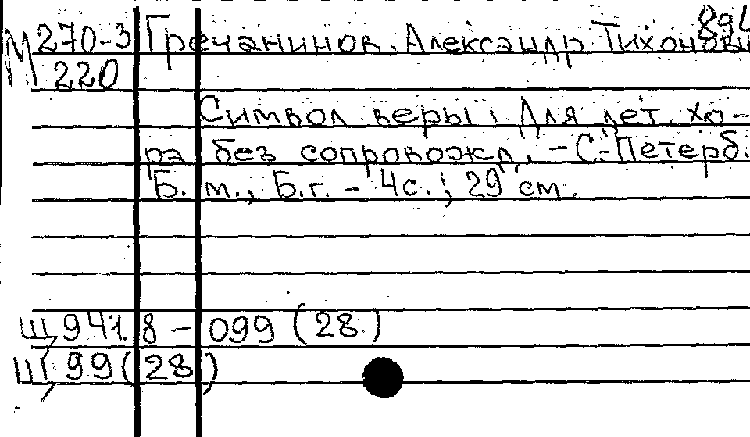 894
М 270-3 Гречанинов, Александр Тихонови
220
Символ веры: Для дет. хо-
ра без сопровожд. - С.-Петерб.:
Б. м., Б.г. - 4с.; 29 см.
Щ 941.8 - 099 (28)
Щ 99(28)